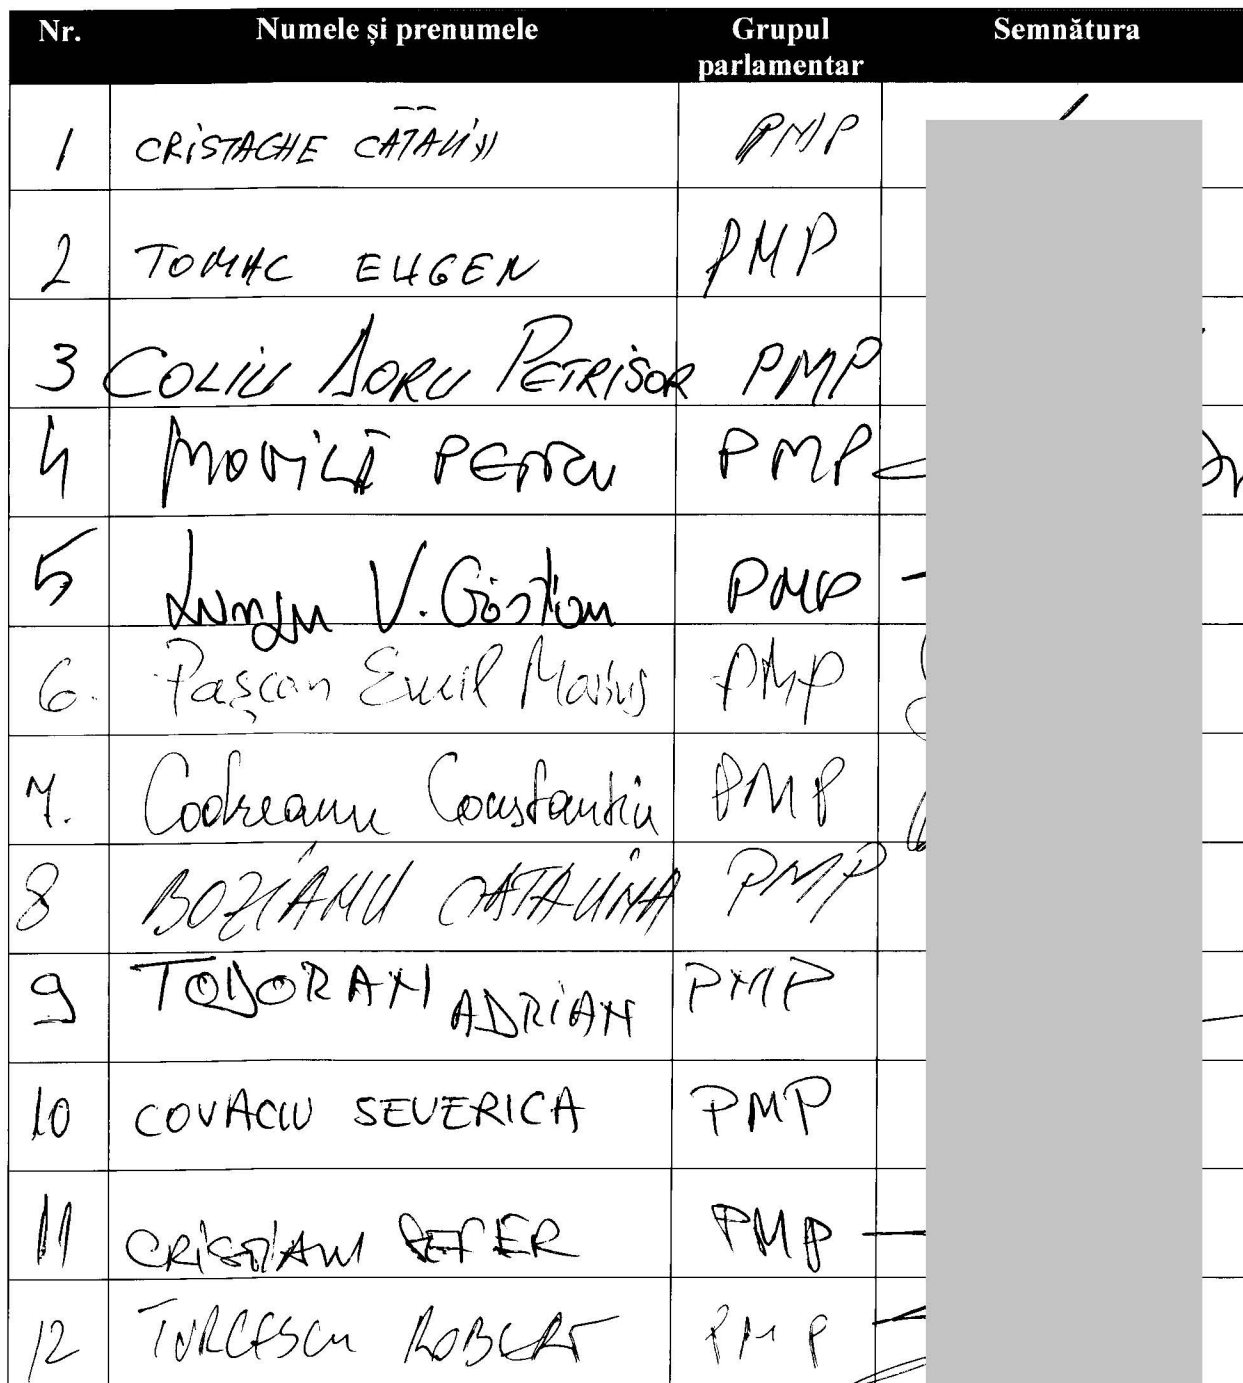 Nr. Numele și prenumele Grupul parlamentar Semnătura
1 CRISTACHE CĂTĂLIN PMP
2 TOMAC EUGEN PMP
3 COLIU DORU PETRISOR PMP
4 MOVILĂ PETRU PMP
5 Lungu V. PMP
6. Pașcan Emil Marius PMP
7. Codreanu Constantin PMP
8 BOZIANU CATALINA PMP
9 TODORAN ADRIAN PMP
10 COVACIU SEVERICA PMP
11 CRISTIAN PMP
12 TURCESCU ROBERT PMP